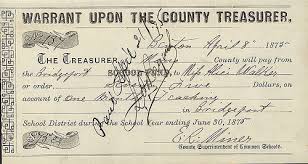 WARRANT UPON THE COUNTY TREASURER,
No. 154
Benton April 8" 1875
THE TREASURER of Mono County will pay from
the Bridgeport SCHOOL FUND, to Miss Alice Walker
or order Seventy Five Dollars, on
account of One Month's teaching
in Bridgeport
School District during the School Year ending June 30" 1875
E. R. Miner
County Superintendent of Common Schools.
Paid April 21/75